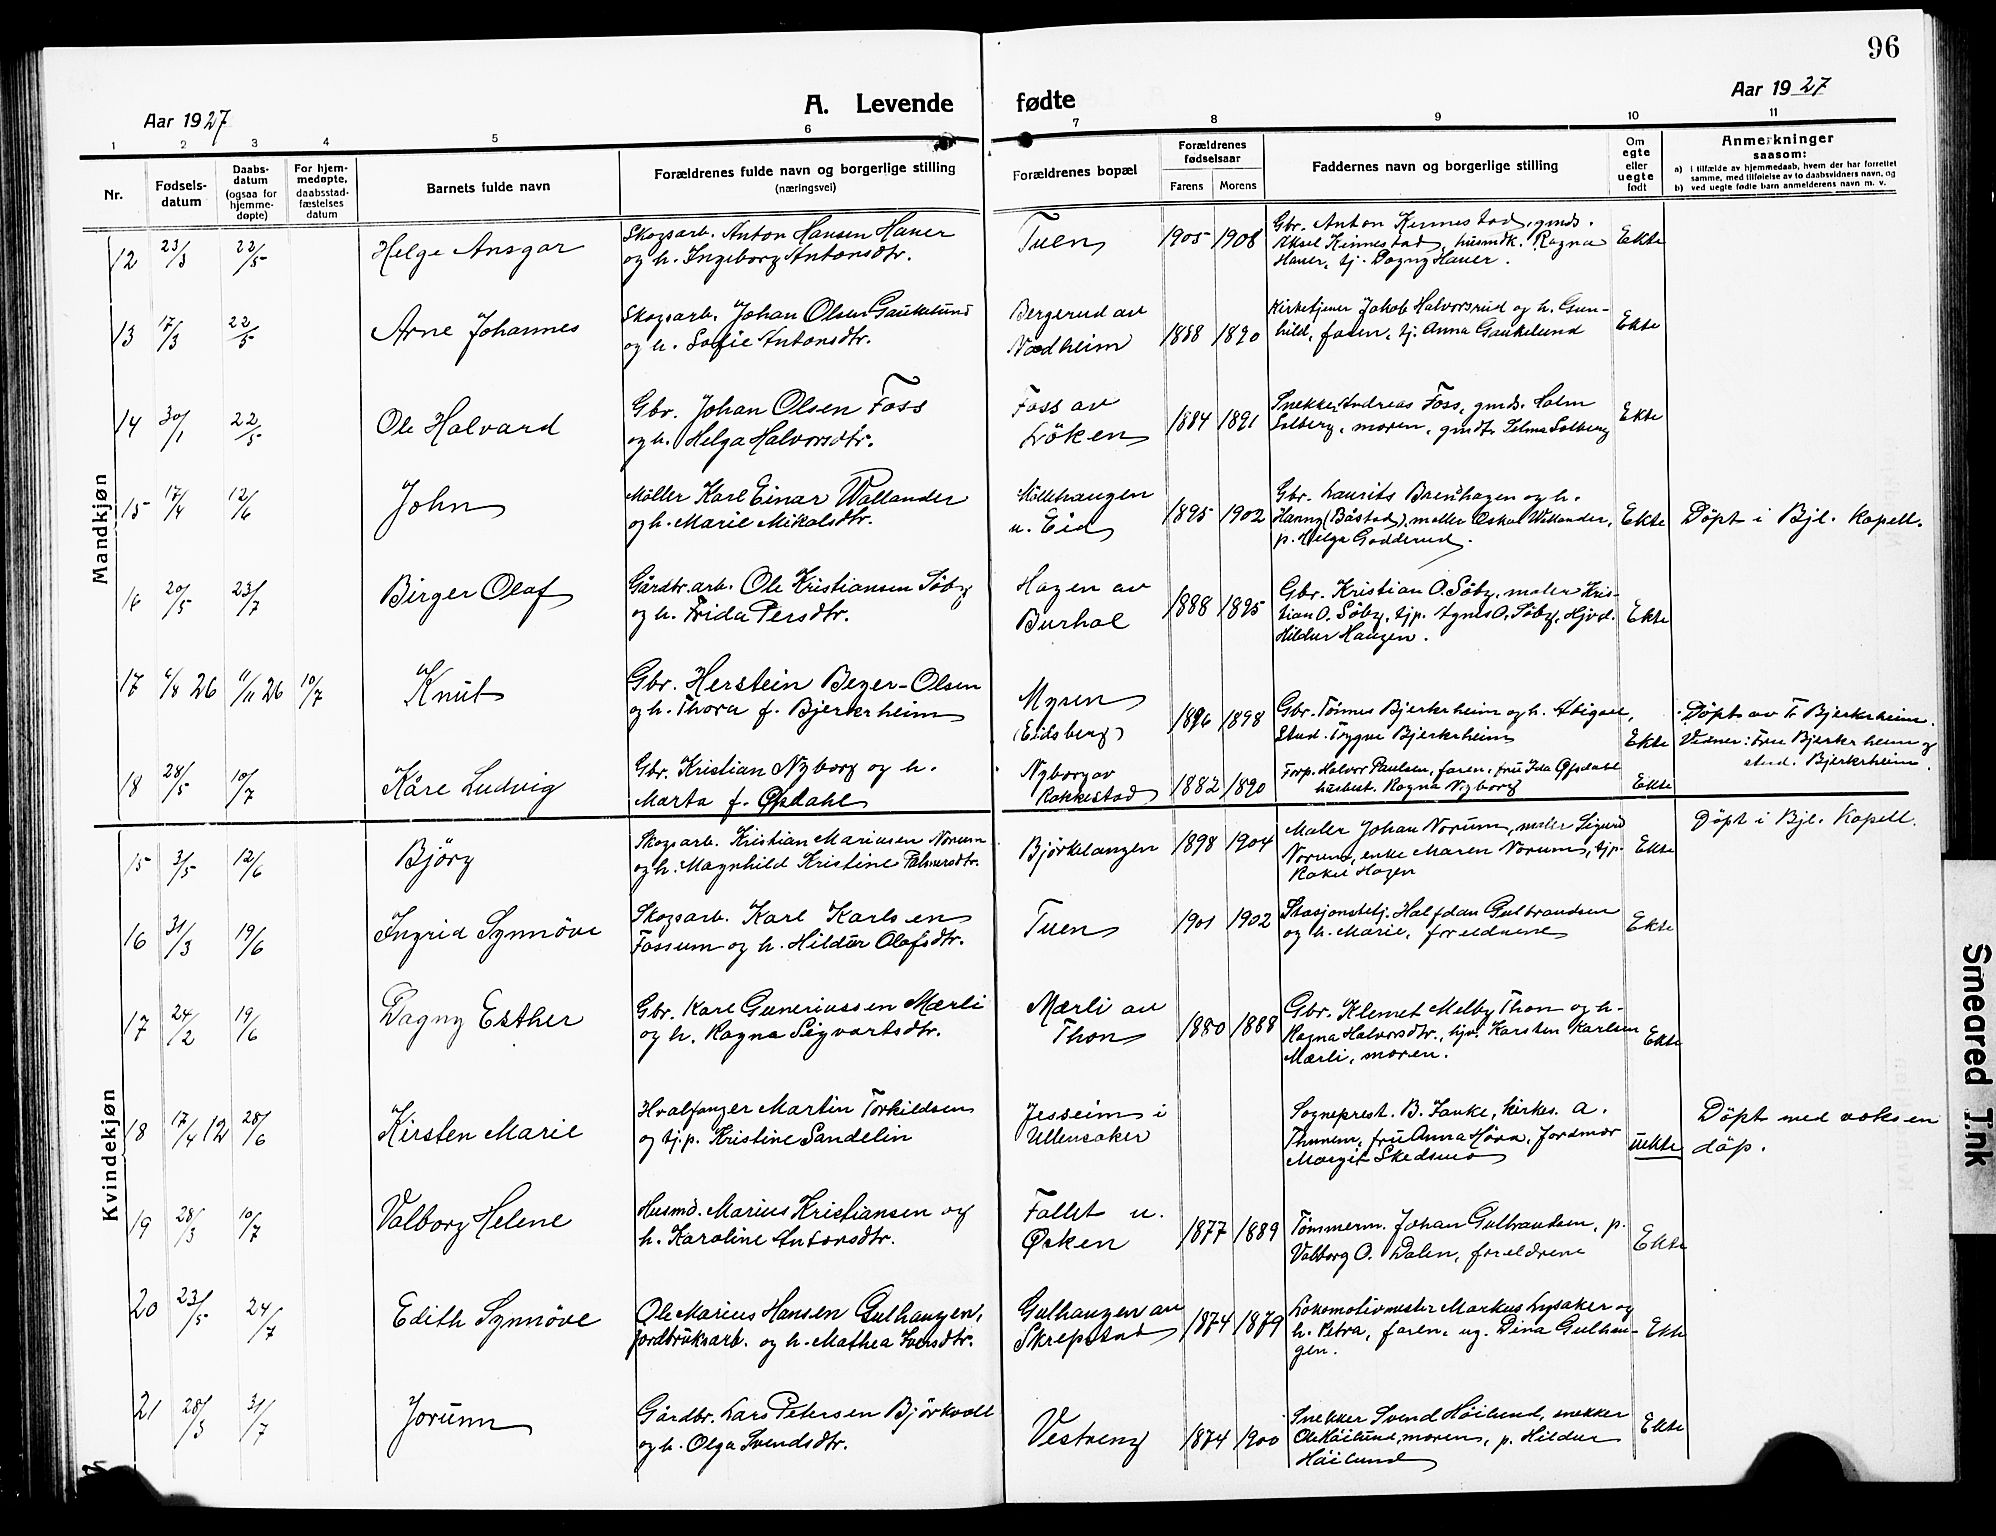 96
Aar 1927
A. Levende fødte
Aar 1927
1 2 3 4 5 6 7 8 9 10 11
Nr.
Fødsels-
datum
Daabs-
datum
(ogsaa for
hjemme-
døpte)
For hjem-
medøpte,
daabsstad-
fæstelses
datum
Barnets fulde navn
Forældrenes fulde navn og borgerlige stilling
(næringsvei)
Forældrenes bopæl
Forældrenes
fødselsaar
Farens Morens
Faddernes navn og borgerlige stilling
Om
egte
eller
uegte
født
Anmerkninger
saasom:
a) i tilfælde av hjemmedaab, hvem der har forrettet
samme, med tilføielse av to daabsvidners navn, og
b) ved uegte fødte barn anmelderens navn m. v.
Mandkjøn
12 23/3 22/5 Helge Ansgar
Skogsarb. Anton Hansen Hauer
og h. Ingeborg Antonsdtr.
Tuen 1905 1908
Gbr. Anton Kinnestad, gmds.
Aksel Kinnestad, husmdk. Ragna
Hauer, tj. Dagny Hauer.
Ekte
13 17/3 22/5 Arne Johannes
Skogsarb. Johan Olsen Gaukelund
og h. Sofie Antonsdtr.
Bergerud av
Nædheim
1888 1890
Kirketjener Jakob Halvorsrud og h. Gun-
hild, faren, tj. Anna Gaukelund
Ekte
14 30/1 22/5 Ole Halvard
Gbr. Johan Olsen Foss
og h. Helga Halvorsdtr.
Foss av
Löken
1884 1891
Snekker Andreas Foss, gmds. Holm
Solberg, moren, gmdtr Selma Solberg
Ekte
15 17/4 12/6 John
Möller Karl Einar Wallander
og h. Marie Mikalsdtr.
Möllhaugen
u. Eid
1895 1902
Gbr. Laurits Brenhagen og h.
Hanny (Båstad), møller Oskar Wallander,
p. Helga Godderud.
Ekte
Döpt i Bjl. Kapell.
16 20/5 23/7 Birger Olaf
Gårdbr.arb. Ole Kristiansen Söby
og h. Frida Persdtr.
Hagen av
Burhol
1888 1895
Gbr. Kristian O. Söby, maler Kris-
tian O. Söby, tjp. Agnes O. Söby, Hjvd.
Hildur Haugen.
Ekte
17 6/8 26 11/11 26 10/7 Knut
Gbr. Herstein Beyer-Olsen
og h. Thora f. Bjerkrheim
Myren
(Eidsberg)
1896 1898
Gbr. Tönnes Bjerkrheim og h. Abigael,
Stud. Trygve Bjerkrheim
Ekte
Döpt av Tr Bjerkrheim.
Vidner: Fru Bjerkrheim og
stud. Bjerkrheim.
18 28/5 10/7 Kåre Ludvig
Gbr. Kristian Nyborg og h.
Marta f. Opdahl
Nyborg av
Rakkestad
1882 1890
Forp. Halvor Paulsen, faren, fru Ida Opsdahl
husbest. Ragna Nyborg
Ekte
Kvindekjøn
15 3/5 12/6 Björg
Skogsarb. Kristian Mariusen Norum
og h. Magnhild Kristine Palmersdtr.
Björkelangen 1898 1904
Maler Johan Norum, maler Sigurd
Norum, enke Maren Norum, tjp.
Rakel Hagen
Ekte
Döpt i Bjl. Kapell.
16 31/3 19/6 Ingrid Synnöve
Skogsarb. Karl Karlsen
Fossum og h. Hildur Olafsdtr.
Tuen 1901 1902
Stasjonsbtj. Halfdan Gulbrandsen
og h. Marie, foreldrene
Ekte
17 24/2 19/6 Dagny Esther
Gbr. Karl Gunerius sen Mærli
og h. Ragna Sigvartsdtr.
Mærli av
Thon
1880 1888
Gbr. Klemet Melby Thon og h.
Ragna Halvorsdtr., hjv. Karsten Karlsen
Mærli, moren.
Ekte
18 17/4 12 28/6 Kirsten Marie
Hvalfanger Martin Torkildsen
og tj.p. Kristine Sandelin
Jessheim i
Ullensaker
Sogneprest. B. Janke, kirkes. A.
Thunem, fru Anna Höra, Jordmor
Margit Skedsmo
uekte
Döpt med voksen
dåp.
19 28/3 10/7 Valborg Helene
Husmd. Marius Kristiansen og
h. Karoline Antonsdtr.
Fallet u.
Ørken
1877 1889
Tömmerm. Johan Gulbrandsen, p.
Valborg O. Dalen, foreldrene
Ekte
20 23/5 24/7 Edith Synnöve
Ole Marius Hansen Gulhaugen,
jordbruksarb. og h. Mathea Iversdtr.
Gulhaugen av
Skrepstad
1874 1879
Lokomotivmester Markus Lysaker og
h. Petra, faren, ug. Dina Gulhau-
gen.
Ekte
21 28/3 31/7 Jorunn
Gårdbr. Lars Petersen Björkvoll
og h. Olga Svendsdtr.
Vestreng 1874 1900
Snekker Svend Höilund, snekker
Ole Höilund, moren, p. Hildur
Höilund
Ekte
Smeared Ink